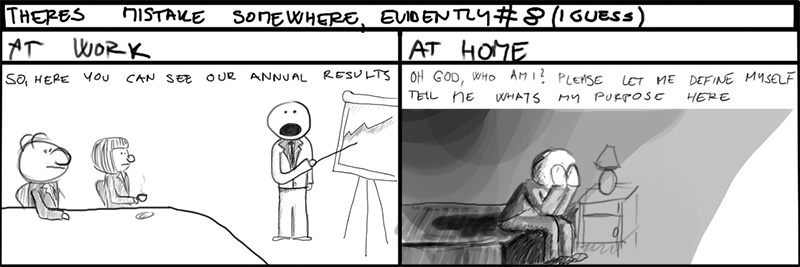 THERES MISTAKE SOMEWHERE, EVIDENTLY # 8 (I GUESS)
AT WORK
SO, HERE YOU CAN SEE OUR ANNUAL RESULTS
AT HOME
OH GOD, WHO AM I? PLEASE LET ME DEFINE MYSELF
TELL ME WHATS MY PURPOSE HERE